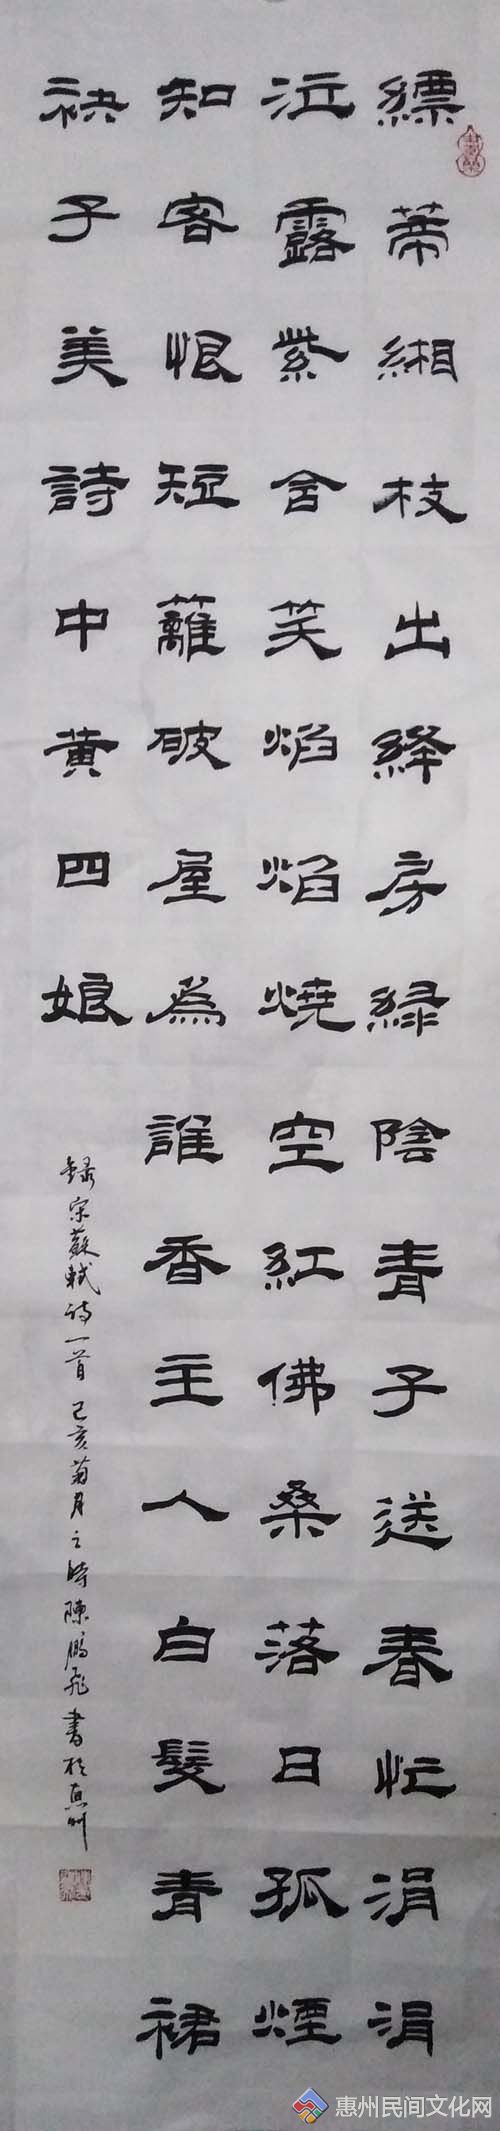 縹蒂緗枝出絳房緑陰青子送春忙涓涓
泣露紫含笑焰焰燒空紅佛桑落日孤煙
知客恨短籬破屋爲誰香主人白髮青裙
袂子美詩中黃四娘
録宋蘇軾詩一首己亥菊月之時陳鵬飛書於惠州
惠州民间文化网